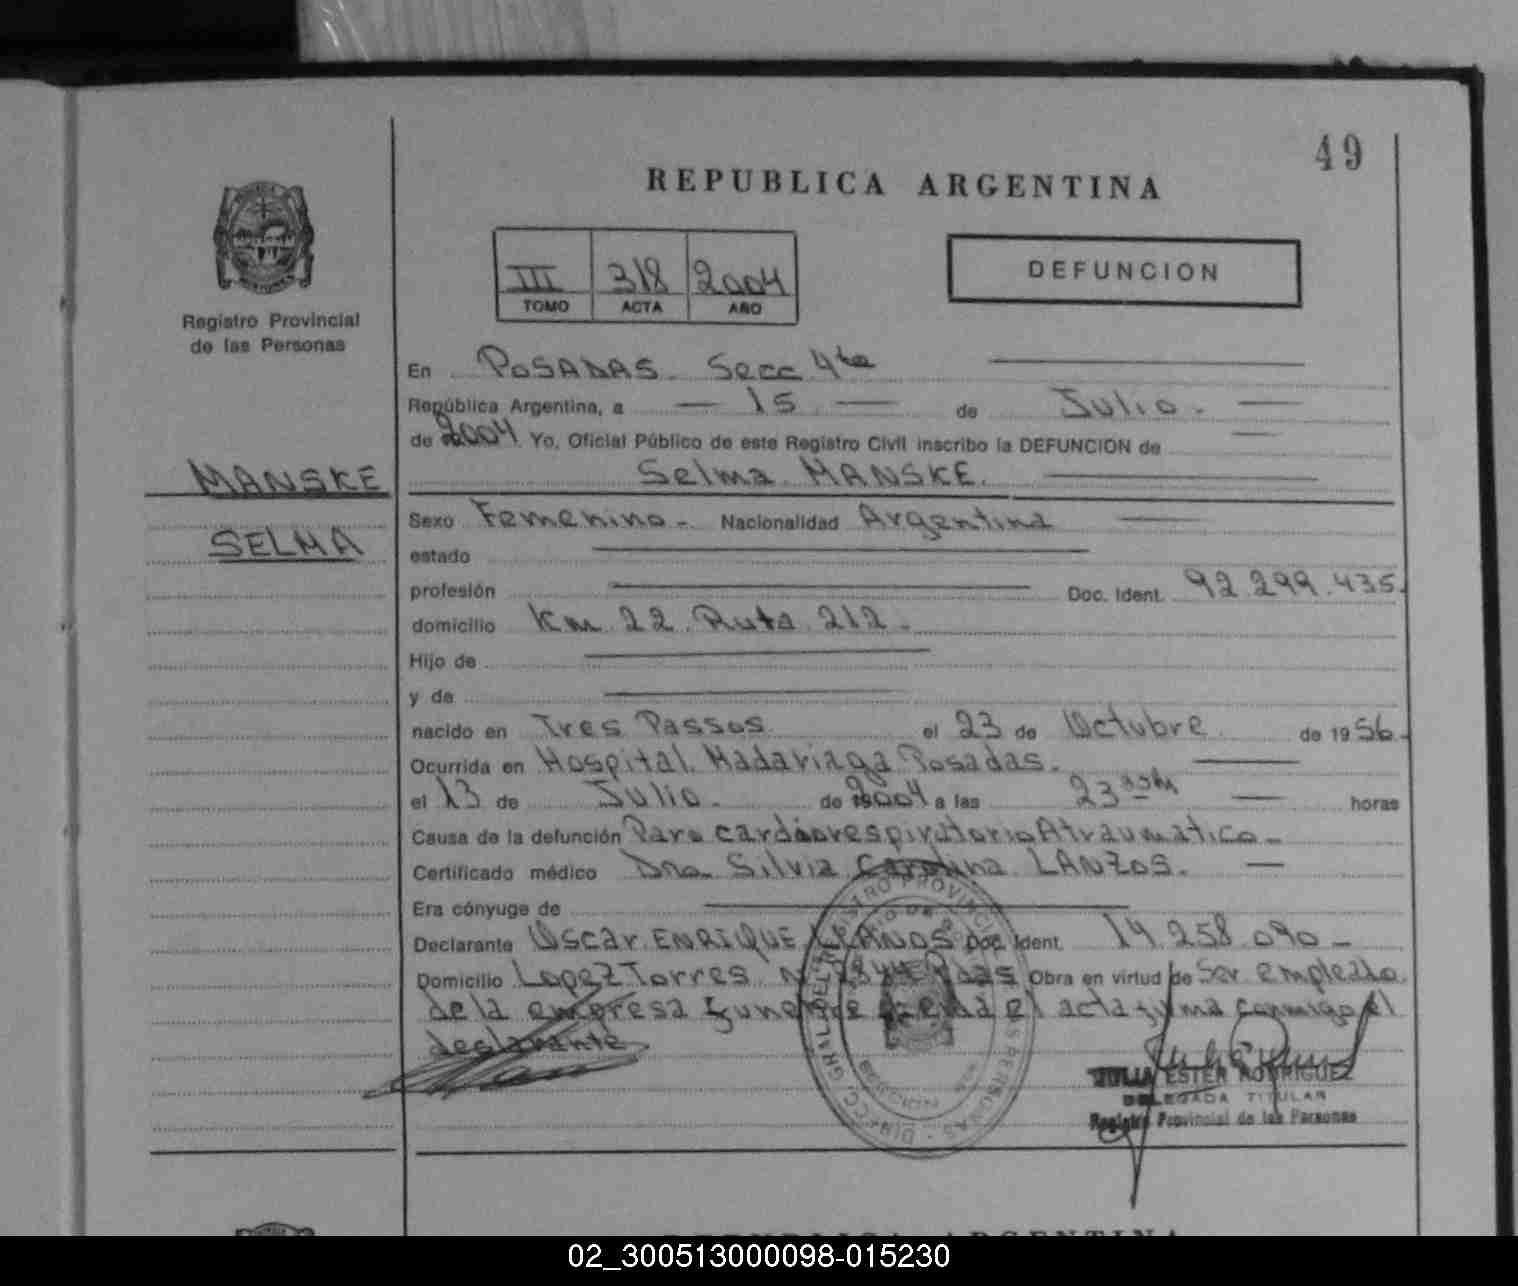 49
REPUBLICA ARGENTINA
III 318 2004
TOMO ACTA AÑO
DEFUNCION
Registro Provincial
de las Personas
En POSADAS. Secc 4ta
República Argentina, a 15 de Julio.
de 2004 Yo, Oficial Público de este Registro Civil inscribo la DEFUNCION de
Selma MANSKE.
MANSKE
SELMA
Sexo Femenino - Nacionalidad Argentina
estado
profesión Doc. Ident. 92.299.435.
domicilio Km 22 Ruta 212.
Hijo de
y de
nacido en Tres Passos el 23 de Octubre de 1956.
Ocurrida en Hospital Madariaga Posadas.
el 13 de Julio. de 2004 a las 23 horas
Causa de la defunción Paro cardiorespiratorio Atraumatico -
Certificado médico Dra. Silvia Carolina LANZOS.
Era cónyuge de
Declarante Oscar ENRIQUE LLANOS Doc. Ident. 14.258.090 -
Domicilio Lopez Torres N° 2844 Pdas Obra en virtud de Ser empleado
de la empresa funebre leida el acta firma conmigo el
declarante
DIRECC. GRAL. DEL REGISTRO PROVINCIAL DE LAS PERSONAS
MISIONES
JULIA ESTER RODRIGUEZ
DELEGADA TITULAR
Registro Provincial de las Personas
REPUBLICA ARGENTINA
02_300513000098-015230